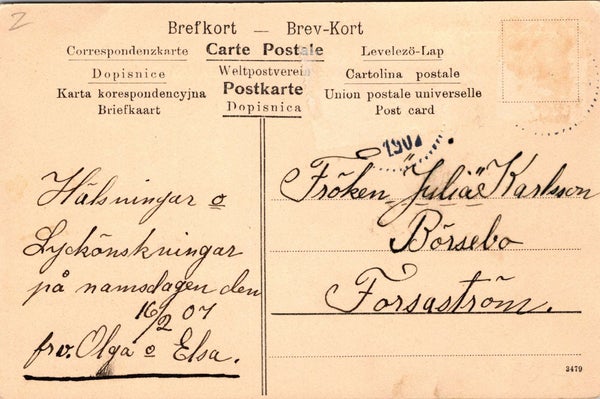 2
Brefkort — Brev-Kort
Correspondenzkarte Carte Postale Levelezö-Lap
Dopisnice Weltpostverein Cartolina postale
Karta korespondencyjna Postkarte Union postale universelle
Briefkaart Dopisnica Post card
1907
Hälsningar o
Lyckönskningar
på namsdagen den
16/2 07
frv. Olga o Elsa.
Fröken "Julia" Karlsson
Börsebo
Forsaström.
3479